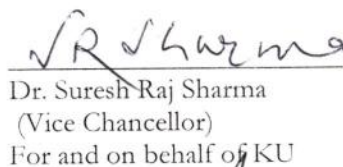 SR Sharma
Dr. Suresh Raj Sharma
(Vice Chancellor)
For and on behalf of KU